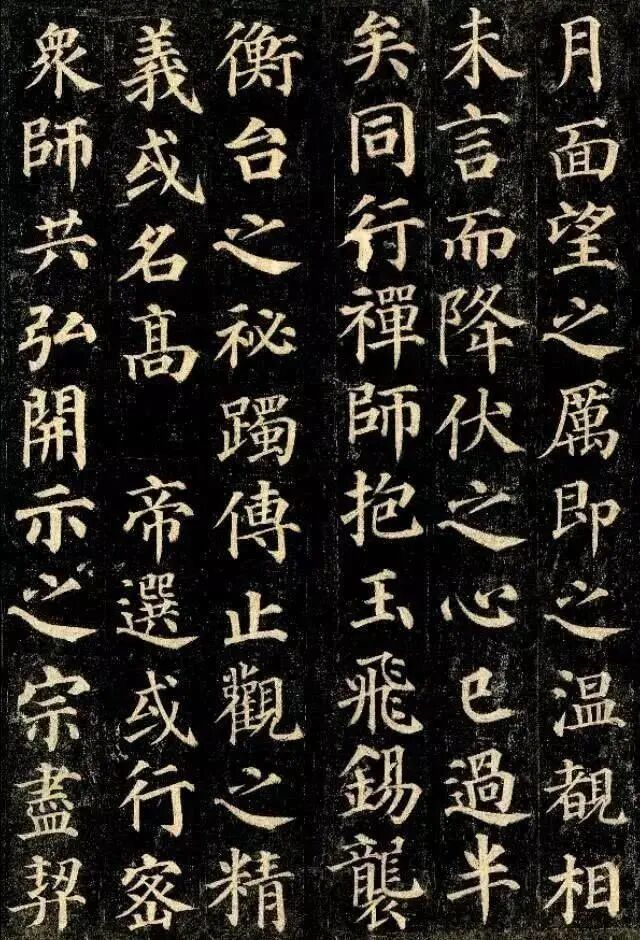 月面望之厲即之溫覩相
未言而降伏之心已過半
矣同行禪師抱玉飛錫襲
衡台之秘躅傳止觀之精
義或名高 帝選或行密
衆師共弘開示之宗盡契